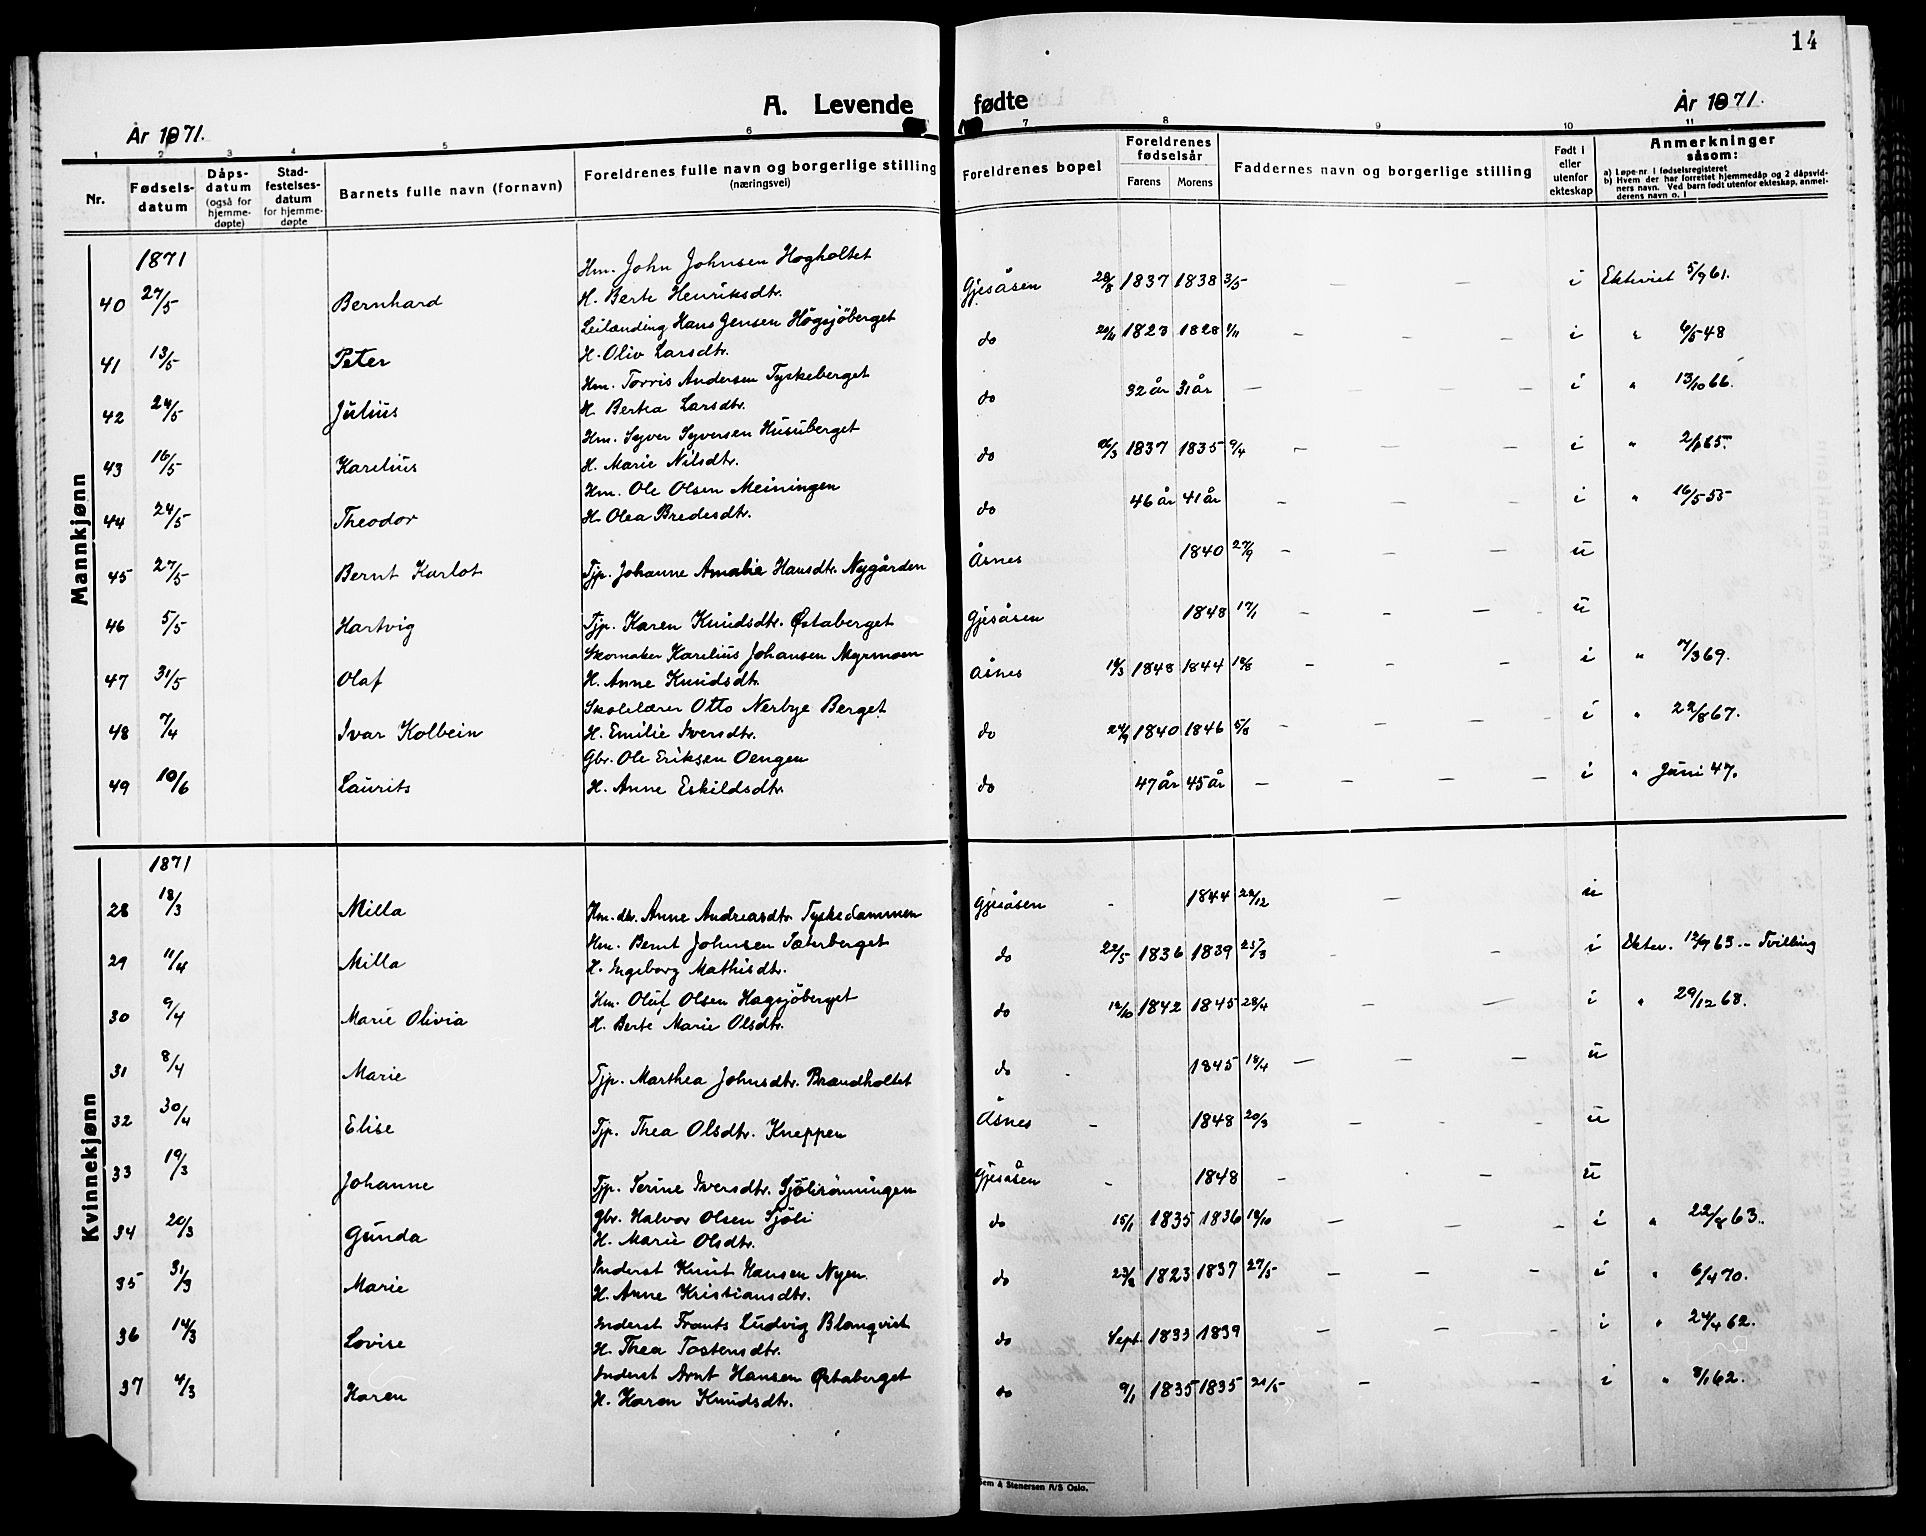 14
A. Levende fødte
År 1871.
År 1871.
1 2 3 4 5 6 7 8 9 10 11
Nr.
Fødsels-datum
Dåps-datum (også for hjemme-døpte)
Stad-festelses-datum for hjemme-døpte
Barnets fulle navn (fornavn)
Foreldrenes fulle navn og borgerlige stilling (næringsvei)
Foreldrenes bopel
Foreldrenes fødselsår
Farens Morens
Faddernes navn og borgerlige stilling
Født i eller utenfor ekteskap
Anmerkninger såsom:
a) Løpe-nr. i fødselsregisteret
b) Hvem der har forrettet hjemmedåp og 2 dåpsvid-ners navn. Ved barn født utenfor ekteskap, anmel-derens navn o. l
Mannkjønn
1871
Hm. John Johnsen Hogholtet
40 27/5 Bernhard H. Berte Henriksdtr. Gjesåsen 28/8 1837 1838 3/5 — — — i Ekteviet 5/9 61.
Leilending Hans Jensen Högsjöberget
41 13/5 Peter H. Oliv Larsdtr. do 20/11 1823 1828 1/11 — — — i " 6/5 48
Hm. Torris Andersen Tyskeberget
42 24/5 Julius H. Bertea Larsdtr. do 32 år 31 år — — — i " 13/10 66.
Hm. Syver Syversen Husuberget
43 16/5 Karelius H. Marie Nilsdtr. do 1837 1835 9/4 — — — i "
Hm. Ole Olsen Meiningen
44 24/5 Theodor H. Olea Bredesdtr. do 46 år 41 år — — — i " 16/5 55
45 27/5 Bernt Karlot Tjp. Johanne Amalie Hansdtr. Nygården Åsnes 1840 27/9 — — — u
46 5/5 Hartvig Tjp. Karen Knudsdtr. Østaberget Gjesåsen 1848 17/1 — — — u
Skomaker Karelius Johansen Myrmoen
47 31/5 Olaf H. Anne Knudsdtr. Åsnes 1848 1844 — — — i " 7/3 69.
Skolelærer Otto Nerbye Berget
48 7/4 Ivar Kolbein H. Emilie Iversdtr. do 24/9 1840 1846 5/8 — — — i " 22/8 67.
Gbr. Ole Eriksen Oengen
49 10/6 Laurits H. Anne Eskildsdtr. do 47 år 45 år — — — i " Juni 47.
Kvinnekjønn
1871
28 18/3 Milla Hm. dtr. Anne Andreasdtr. Tyskedammen Gjesåsen - 1844 22/12 — u
Hm. Bernt Johnsen Sæterberget
29 11/4 Milla H. Ingeborg Mathisdtr. do 22/5 1836 1839 25/3 — — i Ektev. 12/9 63 - Tvilling
Hm. Oluf Olsen Hagsjöberget
30 9/4 Marie Olivia H. Berte Marie Olsdtr. do 12/10 1842 1845 28/4 — — — i " 29/12 68.
31 8/4 Marie Tjp. Marthea Johnsdtr. Brandholtet do - 1845 18/4 — — — u
32 30/4 Elise Tjp. Thea Olsdtr. Kneppen Åsnes - 1848 20/3 — — — u
33 19/3 Johanne Tjp. Serine Iversdtr. Sjölirönningen Gjesåsen - 1848 — — — u
Gbr. Halvor Olsen Sjöli
34 20/3 Gunda H. Marie Olsdtr. do 15/1 1835 1836 18/10 — — — i " 22/8 63.
Inderst Knut Hansen Nyen
35 31/3 Marie H. Anne Kristiansdtr. do 1823 1837 27/5 — — — i " 6/4 70.
Inderst Frants Ludvig Blomqvist
36 14/3 Lovise H. Thea Tostensdtr. do Sept. 1833 1839 — — — i " 24/4 62.
Inderst Arnt Hansen Østaberget
37 4/3 Karen H. Karen Knudsdtr. do 9/1 1835 1835 21/5 — — — i "
Sem & Stenersen A/S Oslo.